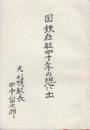 国鉄在職四十年の想い出
元札幌駅長
田中　次郎